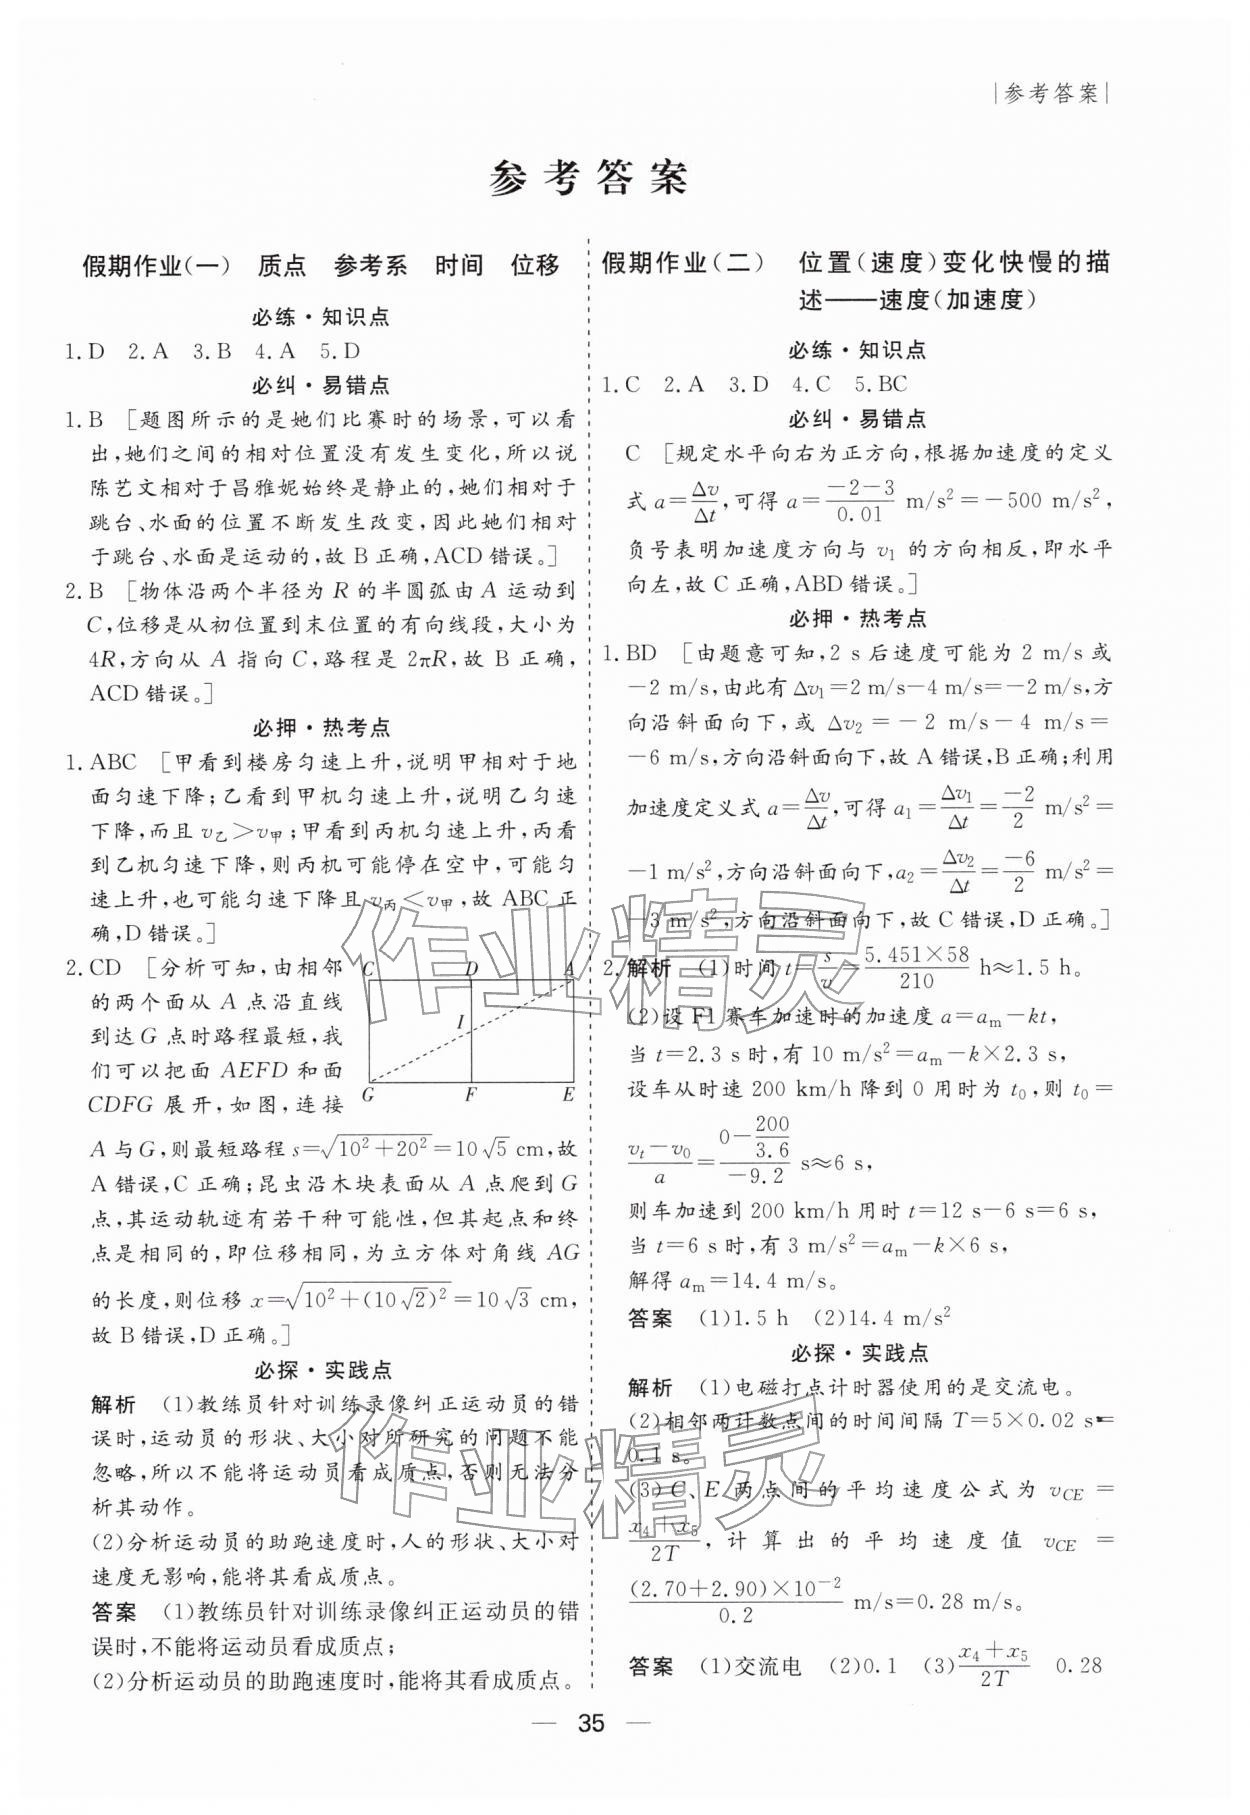 |参考答案|
参考答案
假期作业(一) 质点 参考系 时间 位移
必练·知识点
1.D 2.A 3.B 4.A 5.D
必纠·易错点
1.B [题图所示的是她们比赛时的场景,可以看
出,她们之间的相对位置没有发生变化,所以说
陈艺文相对于昌雅妮始终是静止的,她们相对于
跳台、水面的位置不断发生改变,因此她们相对
于跳台、水面是运动的,故 B 正确,ACD错误。]
2.B [物体沿两个半径为 R 的半圆弧由 A 运动到
C,位移是从初位置到末位置的有向线段,大小为
4R,方向从 A 指向 C,路程是 2πR,故 B 正确,
ACD错误。]
必押·热考点
1.ABC [甲看到楼房匀速上升,说明甲相对于地
面匀速下降;乙看到甲机匀速上升,说明乙匀速
下降,而且 v乙>v甲;甲看到丙机匀速上升,丙看
到乙机匀速下降,则丙机可能停在空中,可能匀
速上升,也可能匀速下降且 v丙<v甲,故 ABC 正
确,D错误。]
2.CD [分析可知,由相邻
的两个面从 A 点沿直线
到达 G 点时路程最短,我
们可以把面 AEFD 和面
CDFG 展开,如图,连接
C D A
I
G F E
A 与 G,则最短路程 s=√(10²+20²)=10√5 cm,故
A 错误,C 正确;昆虫沿木块表面从 A 点爬到 G
点,其运动轨迹有若干种可能性,但其起点和终
点是相同的,即位移相同,为立方体对角线 AG
的长度,则位移 x=√(10²+(10√2)²)=10√3 cm,
故 B 错误,D 正确。]
必探·实践点
解析 (1)教练员针对训练录像纠正运动员的错
误时,运动员的形状、大小对所研究的问题不能
忽略,所以不能将运动员看成质点,否则无法分
析其动作。
(2)分析运动员的助跑速度时,人的形状、大小对
速度无影响,能将其看成质点。
答案 (1)教练员针对训练录像纠正运动员的错
误时,不能将运动员看成质点;
(2)分析运动员的助跑速度时,能将其看成质点。
假期作业(二) 位置(速度)变化快慢的描
述——速度(加速度)
必练·知识点
1.C 2.A 3.D 4.C 5.BC
必纠·易错点
C [规定水平向右为正方向,根据加速度的定义
式 a=Δv/Δt,可得 a=(-2-3)/0.01 m/s²=-500 m/s²,
负号表明加速度方向与 v₁ 的方向相反,即水平
向左,故 C 正确,ABD错误。]
必押·热考点
1.BD [由题意可知,2 s 后速度可能为 2 m/s 或
-2 m/s,由此有 Δv₁=2 m/s-4 m/s=-2 m/s,方
向沿斜面向下,或 Δv₂=-2 m/s-4 m/s=
-6 m/s,方向沿斜面向下,故 A 错误,B 正确;利用
加速度定义式 a=Δv/Δt,可得 a₁=Δv₁/Δt=-2/2 m/s²=
-1 m/s²,方向沿斜面向下,a₂=Δv₂/Δt=-6/2 m/s²=
-3 m/s²,方向沿斜面向下,故 C 错误,D 正确。]
2.解析 (1)时间 t=s/v=(5.451×58)/210 h≈1.5 h。
(2)设 F1 赛车加速时的加速度 a=aₘ-kt,
当 t=2.3 s 时,有 10 m/s²=aₘ-k×2.3 s,
设车从时速 200 km/h 降到 0 用时为 t₀,则 t₀=
(vₜ-v₀)/a=(0-200/3.6)/(-9.2) s≈6 s,
则车加速到 200 km/h 用时 t=12 s-6 s=6 s,
当 t=6 s 时,有 3 m/s²=aₘ-k×6 s,
解得 aₘ=14.4 m/s。
答案 (1)1.5 h (2)14.4 m/s²
必探·实践点
解析 (1)电磁打点计时器使用的是交流电。
(2)相邻两计数点间的时间间隔 T=5×0.02 s=
0.1 s。
(3)C、E 两点间的平均速度公式为 vCE=
(x₄+x₅)/2T,计算出的平均速度值 vCE=
((2.70+2.90)×10⁻²)/0.2 m/s=0.28 m/s。
答案 (1)交流电 (2)0.1 (3)(x₄+x₅)/2T 0.28
作业精灵
作业精灵
— 35 —